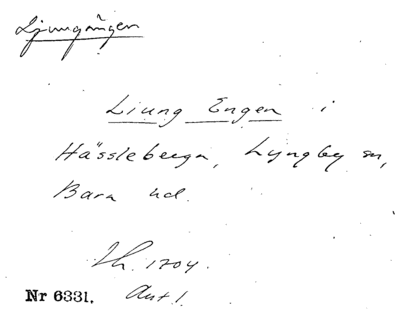 Ljungängen
Liung Engen i
Hässleberga, Lyngby sn,
Bara hd.
Lh. 1704.
Nr 6331. Ant 1.